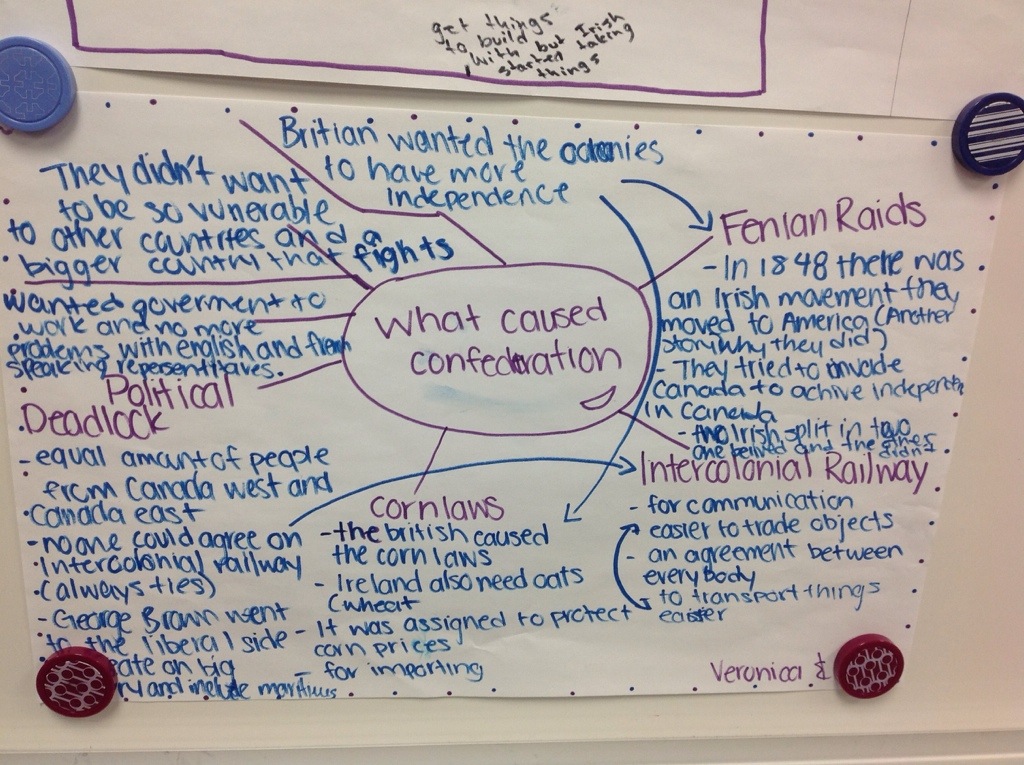 get things
to build Irish
with but taking
started
things
Britian wanted the colonies
to have more
Independence
They didn't want
to be so vunerable
to other countries and a
bigger country that fights
wanted goverment to
work and no more
problems with english and french
speaking representitaves.
What caused
confederation
Fenian Raids
- In 1848 there was
an Irish movement they
moved to America (Another
story why they did)
- They tried to invade
Canada to achive independen
In Canada
- two Irish split in two
one belived and the others
didn't
Political
Deadlock
- equal amant of people
from Canada west and
Canada east
- no one could agree on
Intercolonial railway
(always ties)
- George Brown went
to the liberal side
eate on big
ry and include maritimes
corn laws
- the british caused
the corn laws
- Ireland also need oats
(wheat
- It was assigned to protect
corn prices
- for importing
Intercolonial Railway
- for communication
easier to trade objects
- an agreement between
everybody
to transport things
easier
Veronica &